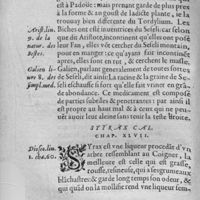 est à Padoüe: mais prenant garde de plus pres
à la forme & au goust de ladicte plante, se la
trouuay bien differente du Tordylium. Les
Arist.lin. Biches ont esté inuentrices du Seseli: car selon
9. de la que dit Aristote, incontinent qu'elles ont mis
natur. des leur Fan, elles vôt cercher du Seseli monta-
bestes. in, pour en manger: ce qu'ayant fait incontinent
apres, elles vont cercher le masle.
Galien li Galien, parlant generalement de toutes sortes
ure 8. des de Seseli, dit ainsi: La racine & la graine de Se-
simpl.med. seli eschauffent si fort, qu'elles font vriner en
grande abondance. Ce medicament est composé
de parties subtiles & penetrantes: par ainsi il
est propre au haut mal, & à ceux qui ne peuuent
tenir leur souffle droit.
STYRAX CAL.
CHAP. XLVII.
Diosc.liu. Styrax est vne liqueur procedãt d'vn
1. cha.60. arbre ressemblant au Coigner, la
meilleure est celle qui est grasse,
rousse, resineuse, qui a les grumeaux
blãchastres: & garde long temps son odeur, &
qui quand on la mollifie rend vne liqueur sem-